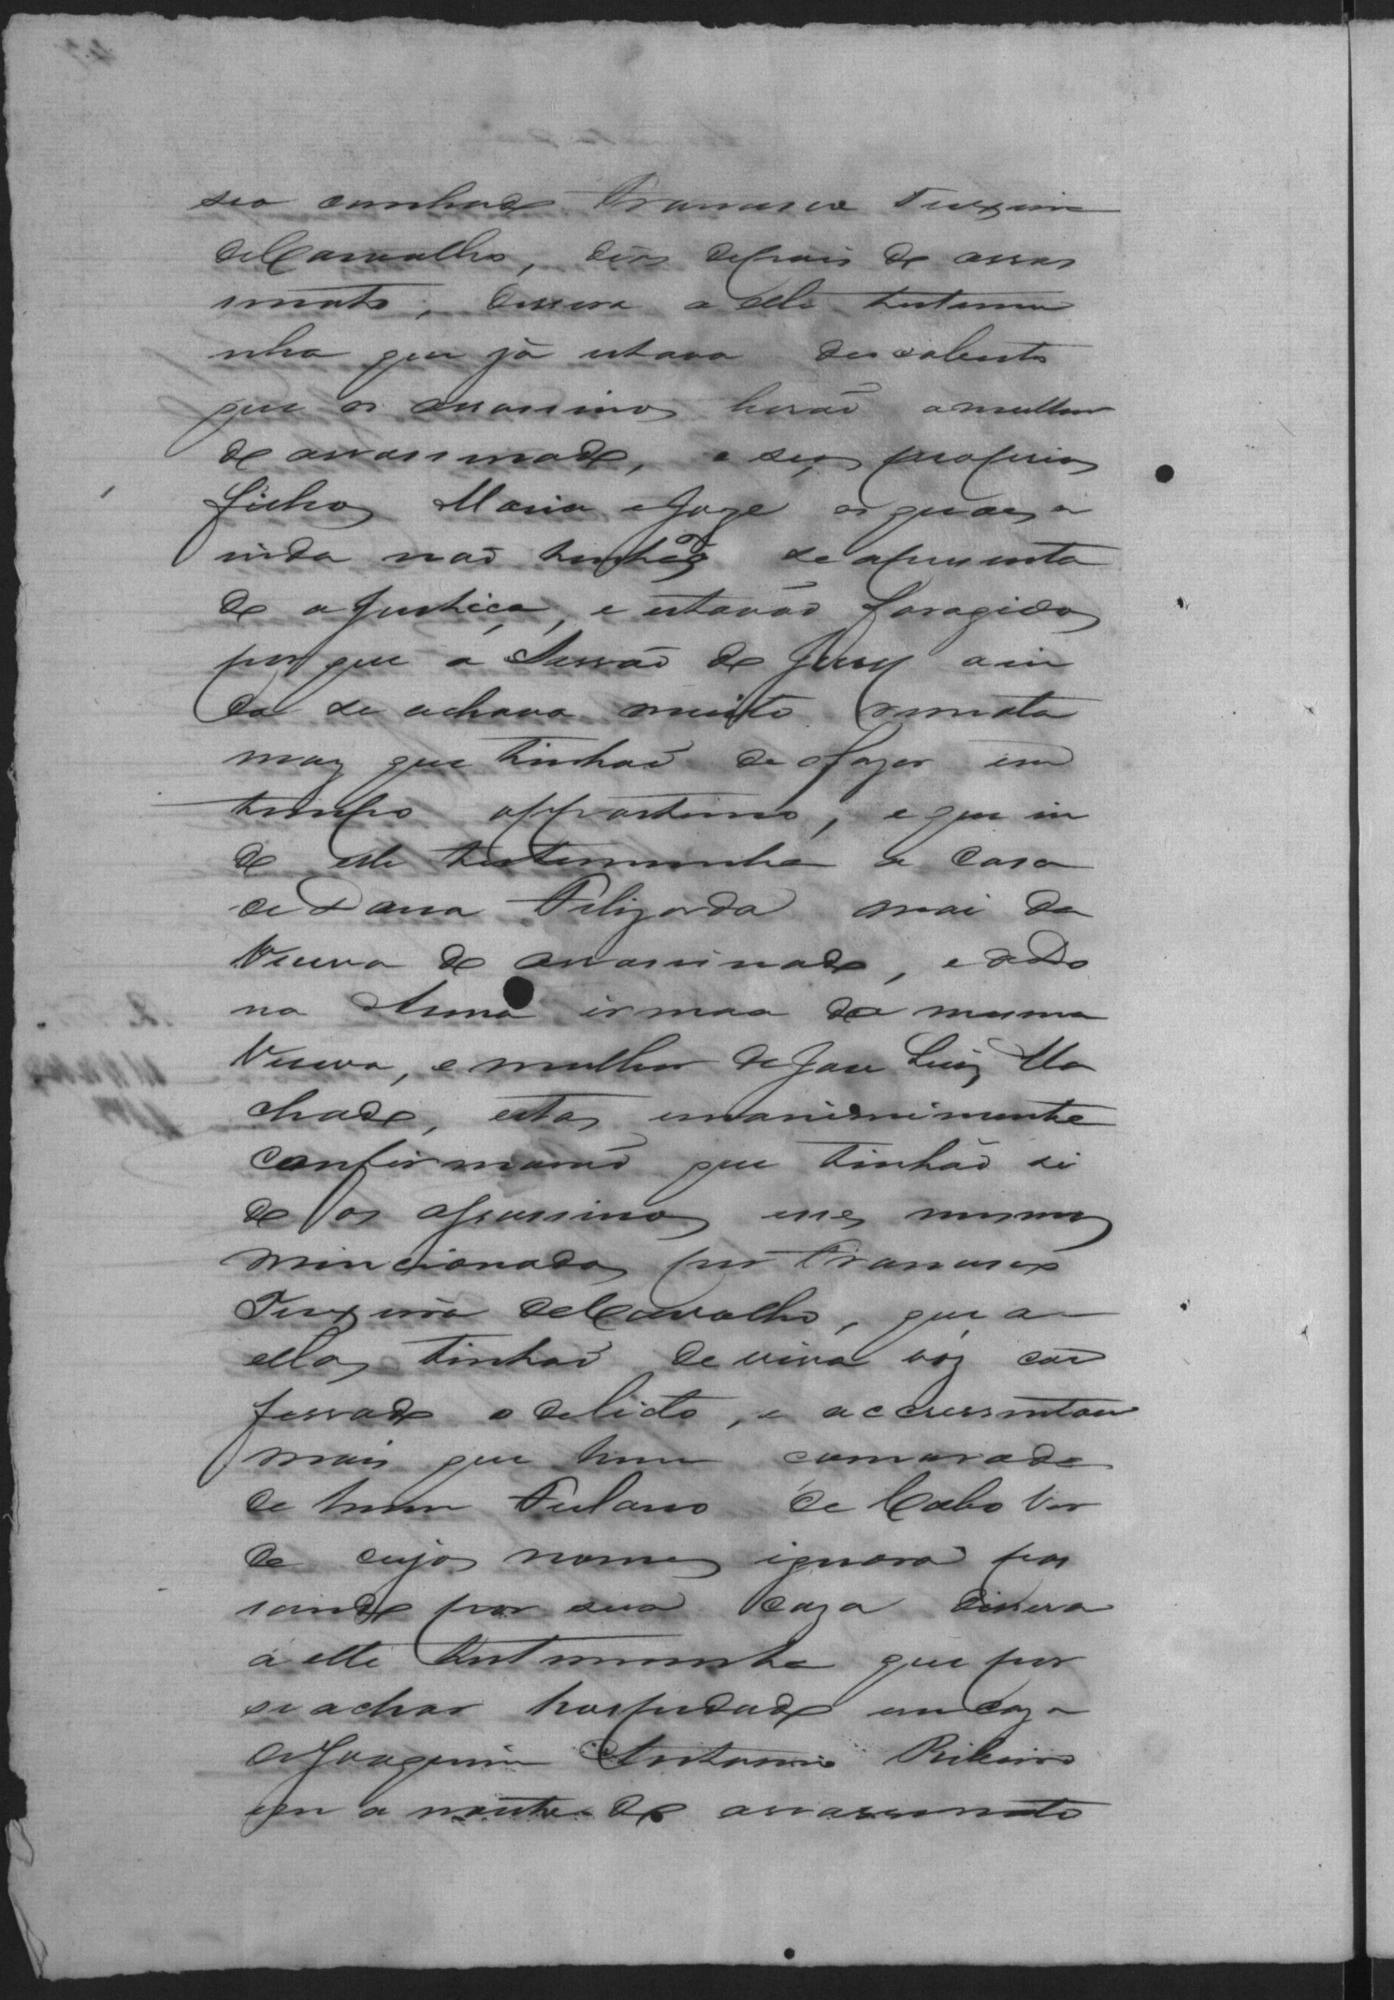 seo cunhado Francisco Teixeira
de Carvalho, dias depois do assas
sinato, dissera a elle testemu
nha que já estava descuberto
que os assassinos herão a mulher
do assassinado, e seus proprios
filhos Maria e Joze os quaes a
inda não tinhão se apresenta
do a Justiça, e estavão foragidos
por que a Sessão do Jury ain
da se achava muito remota
mas que tinhão de o fazer em
tempo opportuno, e que in
do elle testemunha a casa
de Dona Felizarda mai da
Viuva do assassinado, e de Do
na Anna irmaa da mesma
Viuva, e mulher de Jose Luiz Ma
chado, estas unanimimente
confirmarão que tinhão si
do os assassinos esses mesmos
mincionados por Francisco
Teixeira de Carvalho, que a
ellas tinhão de viva voz con
fessado o delicto, e accressentou
mais que hum camarada
de hum Fulano de Cabo Ver
de cujos nomes ignora pas
sando por sua caza dissera
a elle testemunha que por
se achar hospedado em caza
de Joaquim Antonio Ribeiro
em a noite do assassinato